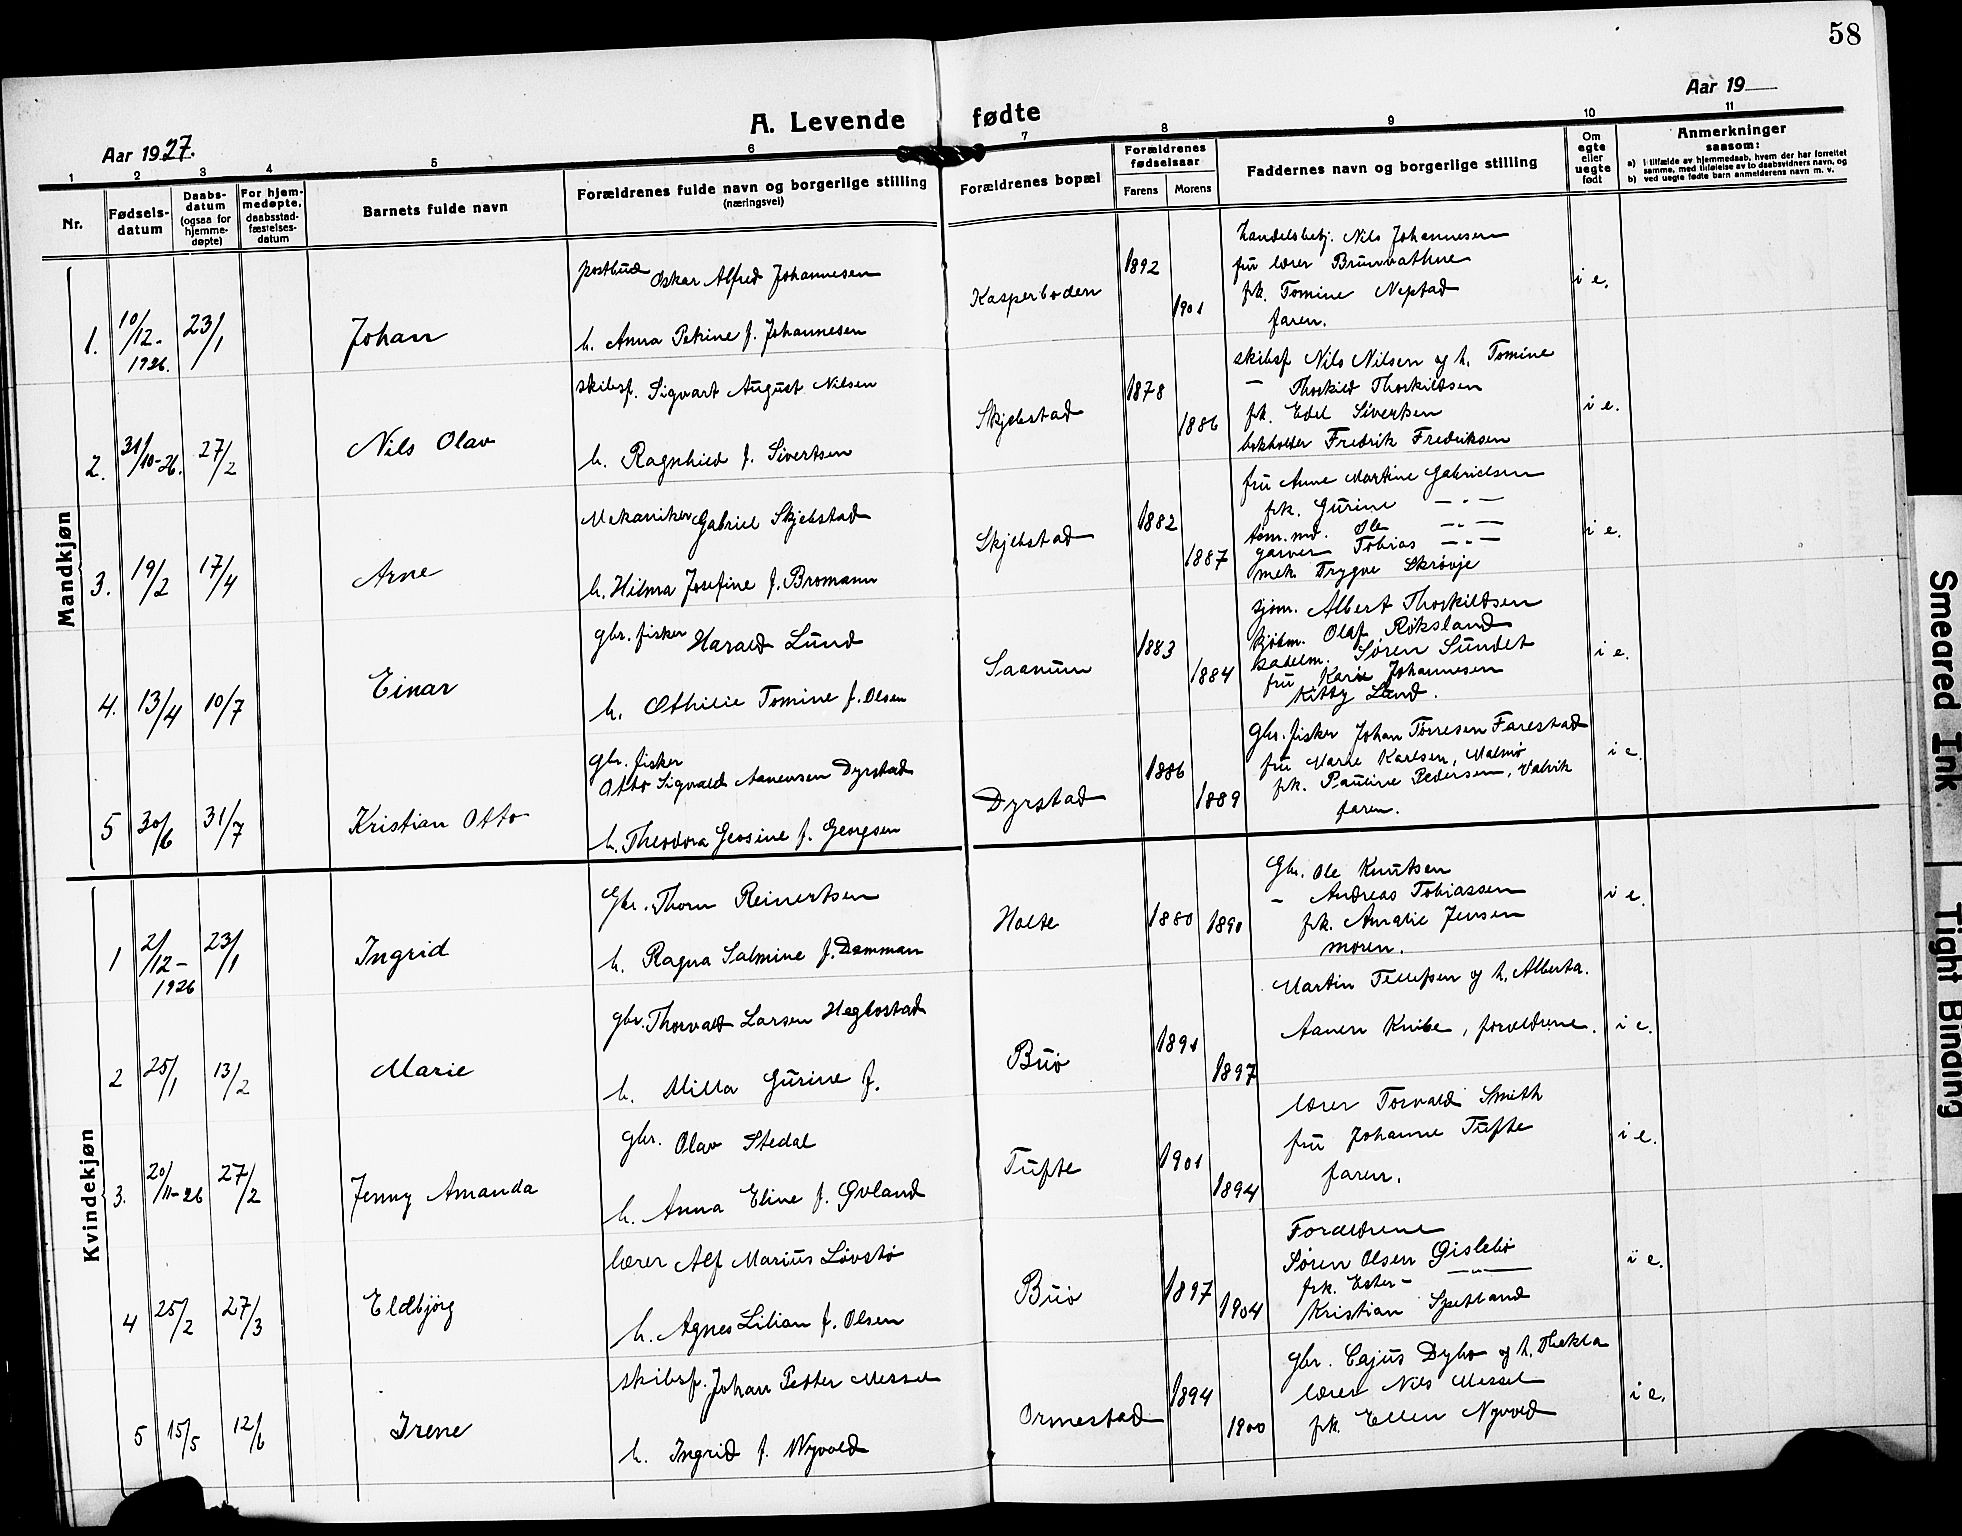 58
Aar 1927.
A. Levende fødte
Aar 19
1 2 3 4 5 6 7 8 9 10 11
Nr.
Fødsels-
datum
Daabs-
datum
(ogsaa for
hjemme-
døpte)
For hjem-
medøpte,
daabsstad-
fæstelses-
datum
Barnets fulde navn
Forældrenes fulde navn og borgerlige stilling
(næringsvei)
Forældrenes bopæl
Forældrenes
fødselsaar
Farens Morens
Faddernes navn og borgerlige stilling
Om
egte
eller
uegte
født
Anmerkninger
saasom:
a) I tilfælde av hjemmedaab, hvem der har forrettet
samme, med tilføielse av to daabsvidners navn, og
b) ved uegte fødte barn anmelderens navn m. v.
Mandkjøn
1. 10/12-1926. 23/1 Johan
postbud Oskar Alfred Johannesen
h. Anna Petrine f. Johannesen
Kasperboden 1892 1901
Handelsbetj. Nils Johannesen
fru lærer Brunvathne
frk. Tomine Neptad
faren.
i e.
2. 31/10-26. 27/2 Nils Olav
skibsf. Sigvart August Nilsen
h. Ragnhild f. Sivertsen
Skjebstad 1878 1886
skibsf Nils Nilsen og h. Tomine
— Thorkild Thorkildsen
frk. Edel Sivertsen
bokholder Fredrik Fredriksen
i e.
3. 19/2 17/4 Arne
Mekaniker Gabriel Skjebstad
h. Hilma Josefine f. Bromann
Skjebstad 1882 1887
fru Anne Martine Gabrielsen
frk. Gurine — " —
tøm. md. Ole — " —
garver Tobias — " —
mek. Trygve Skrøvje
i e.
4. 13/4 10/7 Einar
gbr. fisker Harald Lund
h. Othilie Tomine f. Olsen
Saanum 1883 1884
sjøm. Albert Thorkildsen
kjøbm. Olaf Røksland
Søren Sundet
fru Karie Johannesen
Kitty Lund.
i e.
5 30/6 31/7 Kristian Otto
gbr. fisker
Otto Sigvald Aanensen Dyrstad
h. Theodora Geosine f. Georgsen
Dyrstad 1886 1889
Gbr. fisker Johan Tørresen Farestad
fru Marie Karlsen, Malmø
frk. Pauline Pedersen, Valvik
faren.
i e.
Kvindekjøn
1 2/12-1926 23/1 Ingrid
Gbr. Thorn Reinertsen
h. Ragna Salmine f. Damman
Holte 1880 1890
Gbr. Ole Knutsen
- Andreas Tobiassen
frk. Amalie Jensen
moren.
i e.
2 25/1 13/2 Marie
gbr. Thorvald Larsen Heglostad
h. Milla Gurine f.
Buø 1891 1897
Martin Tellefsen og h. Alberta.
Aanen Knibe, forældrene.
i e.
3. 20/11-26 27/2 Jenny Amanda
gbr. Olav Stedal
h. Anna Eline f. Øvland
Tufte 1901 1894
lærer Torvald Smith
fru Johanne Tufte
faren.
i e.
4 25/2 27/3 Eldbjörg
lærer Alf Marius Løvstø
h. Agnes Lilian f. Olsen
Buø 1897 1904
Forældrene
Søren Olsen Gislebø
frk. Ester — " —
Kristian Spetland
i e.
5 15/5 12/6 Irene
skibsf. Johan Petter Messel
h. Ingrid f. Nyvold
Ormestad 1894 1900
gbr. Cajus Dybo og h. Thekla
lærer Nils Messel
frk. Ellen Nyvold
i e.
Smeared Ink
Tight Binding